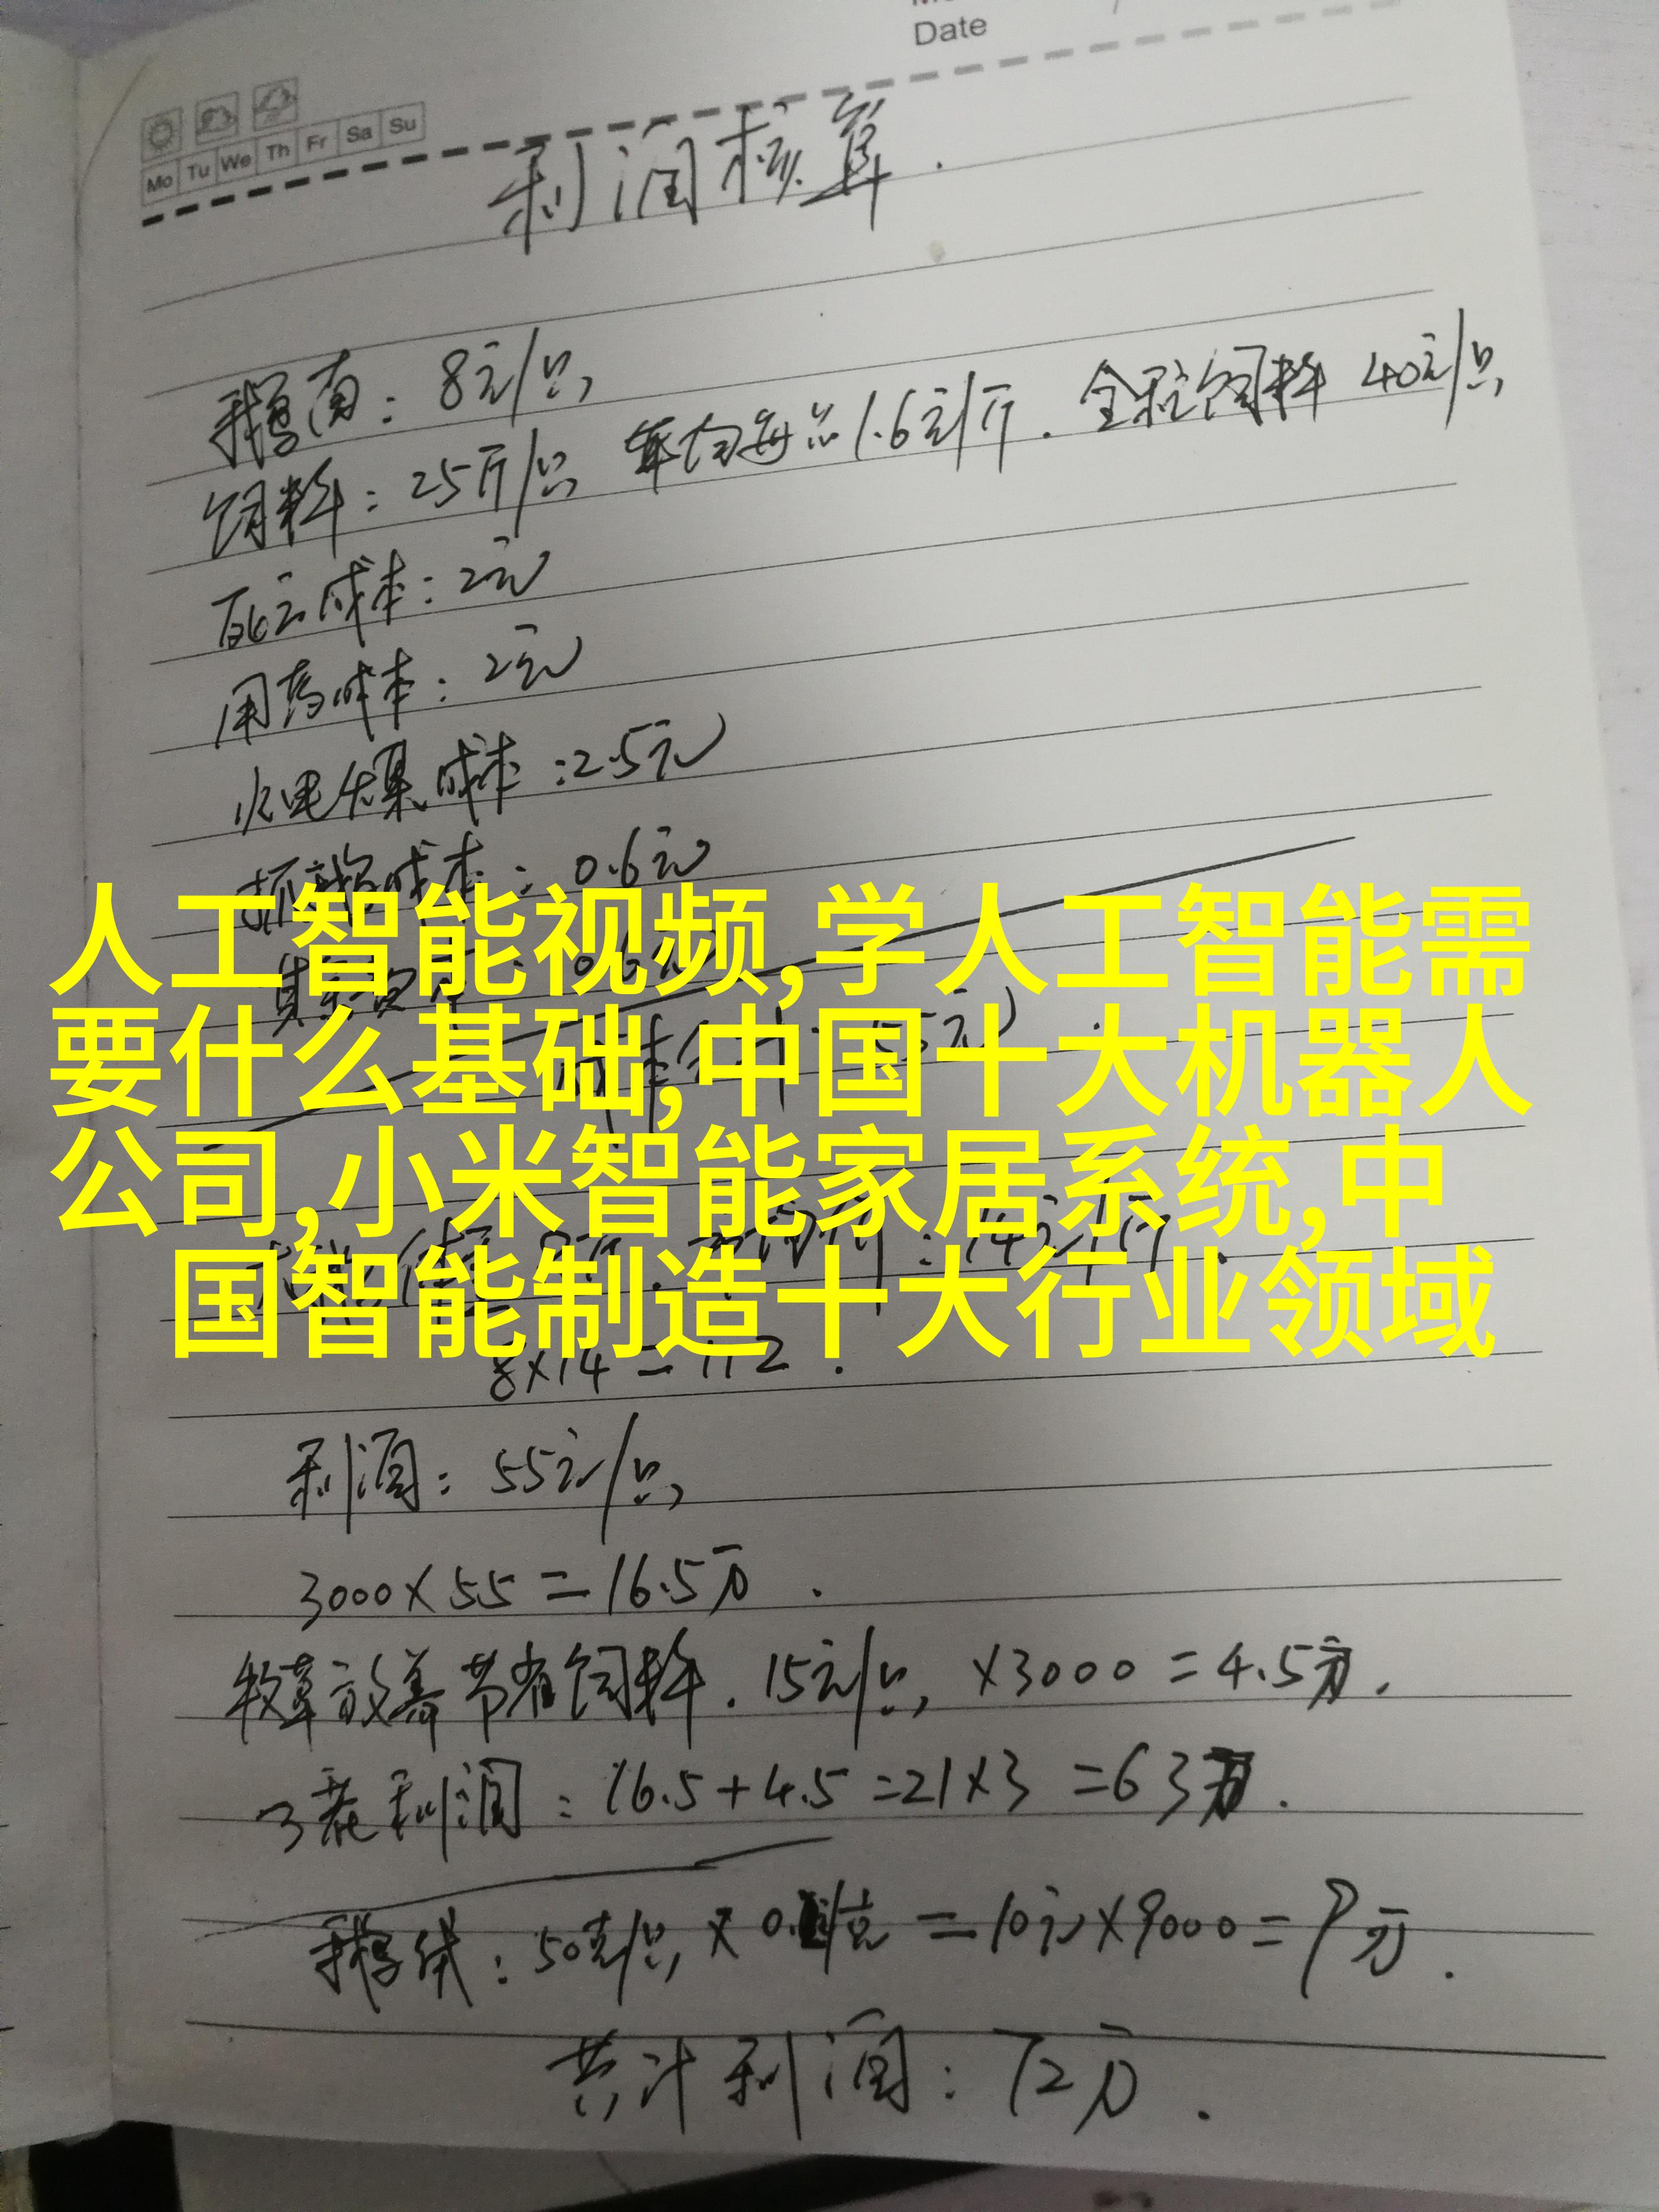 Date
Mo Tu We Th Fr Sa Su
利润核算.
鹅苗：8元/只
饲料：25斤/只 平均每斤1.6元/斤.全程饲料 40元/只
死亡成本：2元
用药成本：2元
水电煤成本：2.5元
抓鹅成本：0.6元
人工智能视频,学人工智能需
要什么基础,中国十大机器人
公司,小米智能家居系统,中
国智能制造十大行业领域
8×14=112.
利润：55元/只
3000×55=16.5万.
牧草放养节省饲料.15元/只,×3000=4.5万.
3茬利润：16.5+4.5=21×3=63万.
鹅绒：50克/只,×0./克=10元×9000=9万.
共计利润：72万.